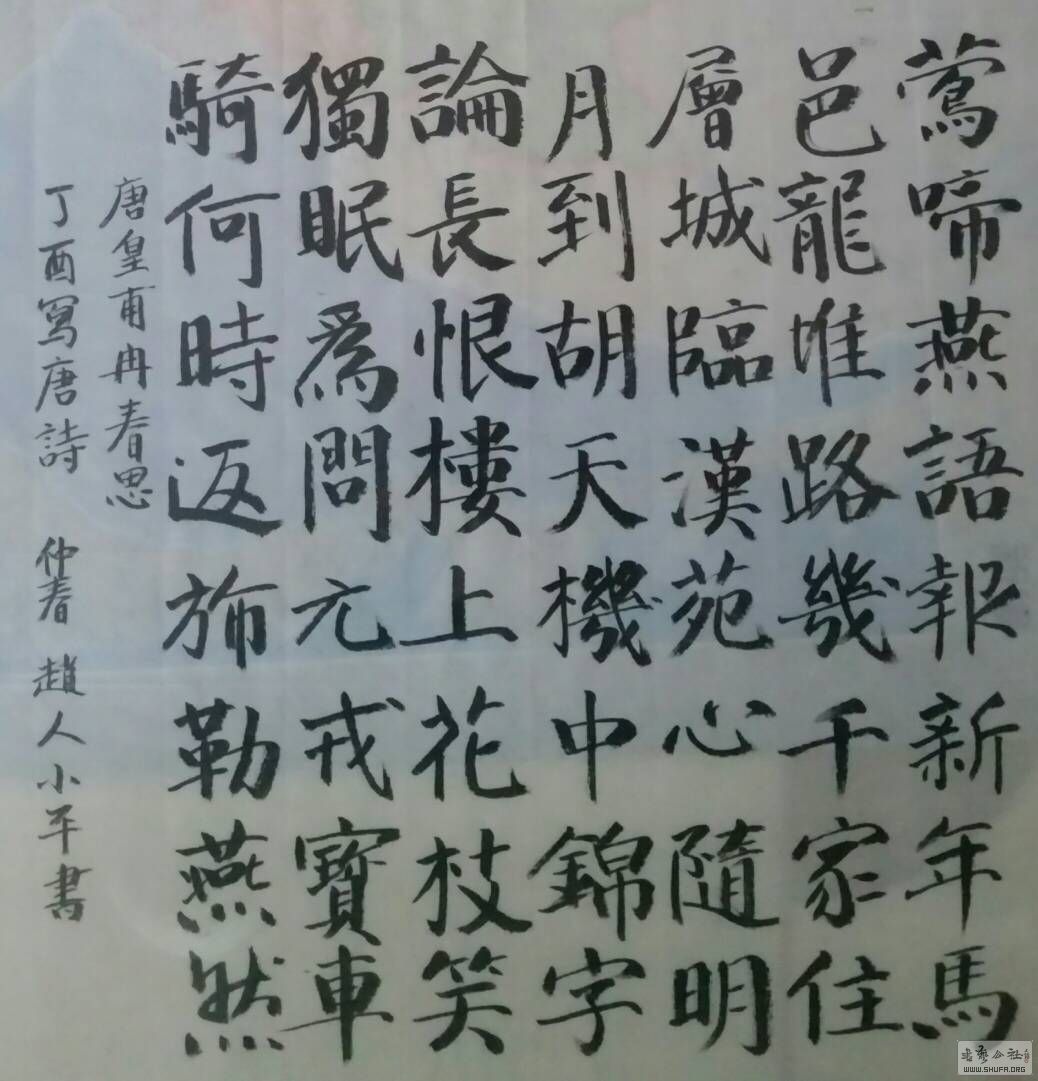 鶯啼燕語報新年馬
邑龍堆路幾千家住
層城臨漢苑心隨明
月到胡天機中錦字
論長恨樓上花枝笑
獨眠爲問元戎寶車
騎何時返旆勒燕然
唐皇甫冉春思
丁酉寫唐詩 仲春 趙人小平書
WWW.SHUFA.ORG